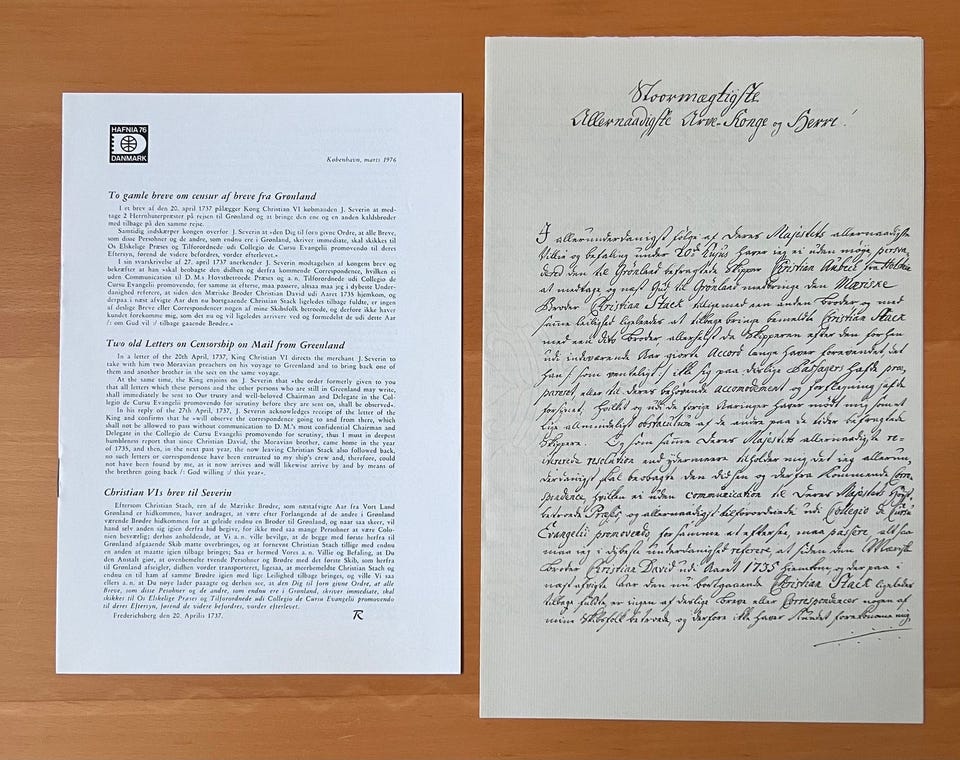 HAFNIA 76
DANMARK
København, marts 1976
To gamle breve om censur af breve fra Grønland
I et brev af den 20. april 1737 pålægger Kong Christian VI købmanden J. Severin at med-
tage 2 Herrnhuterpræster på rejsen til Grønland og at bringe den ene og en anden kaldsbroder
med tilbage på den samme rejse.
Samtidig indskærper kongen overfor J. Severin at »den Dig til forn givne Ordre, at alle Breve,
som disse Personer og de andre, som endnu ere i Grønland, skriver immediate, skal skikkes til
Os Elskelige Præses og Tilforordnede udi Collegio de Cursu Evangelii promovendo til deres
Eftersyn, førend de videre befordres, vorder efterlevet.«
I sin svarskrivelse af 27. april 1737 anerkender J. Severin modtagelsen af kongens brev og
bekræfter at han »skal beobagte den didhen og derfra kommende Correspondence, hvilken ei
uden Communication til D.M.s Høystbetroede Præses og a. n. Tilforordnede udi Collegio de
Cursu Evangelii promovendo, for samme at efterse, maa passere, altsaa maa jeg i dybeste Under-
danighed referere, at siden den Mæriske Broder Christian David udi Aaret 1735 hjemkom, og
derpaa i næst afvigte Aar den nu bortgaaende Christian Stack ligeledes tilbage fuldte, er ingen
af deslige Breve eller Correspondencer nogen af mine Skibsfolk betroede, og derfore ikke haver
kundet forekomme mig, som det nu og vil ligeledes arriver ved og formedelst de udi dette Aar
/: om Gud vil :/ tilbage gaaende Brødre.«
Two old Letters on Censorship on Mail from Greenland
In a letter of the 20th April, 1737, King Christian VI directs the merchant J. Severin to
take with him two Moravian preachers on his voyage to Greenland and to bring back one of
them and another brother in the sect on the same voyage.
At the same time, the King enjoins on J. Severin that »the order formerly given to you
that all letters which these persons and the other persons who are still in Greenland may write,
shall immediately be sent to Our trusty and well-beloved Chairman and Delegate in the Col-
legio de Cursu Evangelii promovendo for scrutiny before they are sent on, shall be observed«.
In his reply of the 27th April, 1737, J. Severin acknowledges receipt of the letter of the
King and confirms that he »will observe the correspondence going to and from there, which
shall not be allowed to pass without communication to D. M.'s most confidential Chairman and
Delegate in the Collegio de Cursu Evangelii promovendo for scrutiny, thus I must in deepest
humbleness report that since Christian David, the Moravian brother, came home in the year
of 1735, and then, in the next past year, the now leaving Christian Stack also followed back,
no such letters or correspondence have been entrusted to my ship's crew and, therefore, could
not have been found by me, at it now arrives and will likewise arrive by and by means of
the brethren going back /: God willing :/ this year«.
Christian VIs brev til Severin
Eftersom Christian Stach, een af de Mæriske Brødre, som næstafvigte Aar fra Vort Land
Grønland er hidkommen, haver andraget, at være efter Forlangende af de andre i Grønland
værende Brødre hidkommen for at geleide endnu en Broder til Grønland, og naar saa skeer, vil
hand selv anden sig igien derfra hid begive, for ikke med saa mange Personer at være Colo-
nien besværlig; derhos anholdende, at Vi a.n. ville bevilge, at de begge med første herfra til
Grønland afgaaende Skib matte overbringes, og at fornevnt Christian Stach tillige med endnu
en anden at maatte igien tilbage bringes; Saa er hermed Vores a.n. Villie og Befaling, at Du
den Anstalt giør, at ovenbemelte tvende Personer og Brødre med det første Skib, som herfra
til Grønland afseigler, didhen vorder transporteret, ligesaa, at meerbemeldte Christian Stach og
endnu en til ham af samme Brødre igien med lige Leilighed tilbage bringes, og ville Vi saa
ellers a.n. at Du nøye lader paaagte og derhen see, at den Dig til forn givne Ordre, at alle
Breve, som disse Persohner og de andre, som endnu ere i Grønland, skriver immediate, skal
skikkes til Os Elskelige Præses og Tilforordnede udi Collegio de Cursu Evangelii promovendo
til deres Eftersyn, førend de videre befordres, vorder efterlevet.
Frederichsberg den 20. Aprilis 1737.
R
Stoormægtigste
Allernaadigste Arve-Konge og Herre!
I allerunderdanigst følge af Deres Majestets allernaadigste
Villie og befaling under 20de Hujus haver jeg ei uden møje persva-
dered den til Grønland befragtede Skipper Christian Andres fra Holstein
at modtage og næst Gud til Grønland medbringe den Mæriske
Broder Christian Stack tilligemed een anden Broder og med
samme leilighed ligeledes at tilbage bringe bemeldte Christian Stack
med een dets Broder allerhelst da Skipperen efter den for ham
udi indeværende Aar giorte Accord lange haver forevendet det
han /: som venteligt :/ ikke sig paa deslige Passagers hafde præ-
pareret eller til deres behørende accomodement og forplegning hafde
forsynet. Holdt og udi de forige Aaringer haver mødt mig som et
lige almindeligt obstaculum af de andre paa de tider befragtede
Skippere. Og som samme Deres Majestets allernaadigste re-
indvermaare tilholder mig det jeg allerun-
derdanigst skal beobagte den didhen og derfra kommende Corre-
spondence, hvilken ei uden communication til Deres Majestets Høyst-
betroede Præses og allernaadigst tilforordnede udi Collegio de Cursu
Evangelii promovendo, for samme at efterse, maa passere, altsaa
maa jeg i dybeste underdanighed referere, at siden den Mæriske
Broder Christian David udi Aaret 1735 hiemkom og der paa i
næst afvigte Aar den nu bortgaaende Christian Stack ligeledes
tilbage fuldte, er ingen af deslige breve eller Correspondencer nogen af
mine Skibsfolk betroede, og derfore ikke haver kundet forekomme mig,